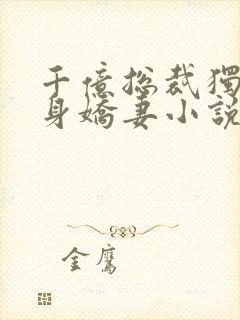 千億總裁獨
身嬌妻小說
金鷹